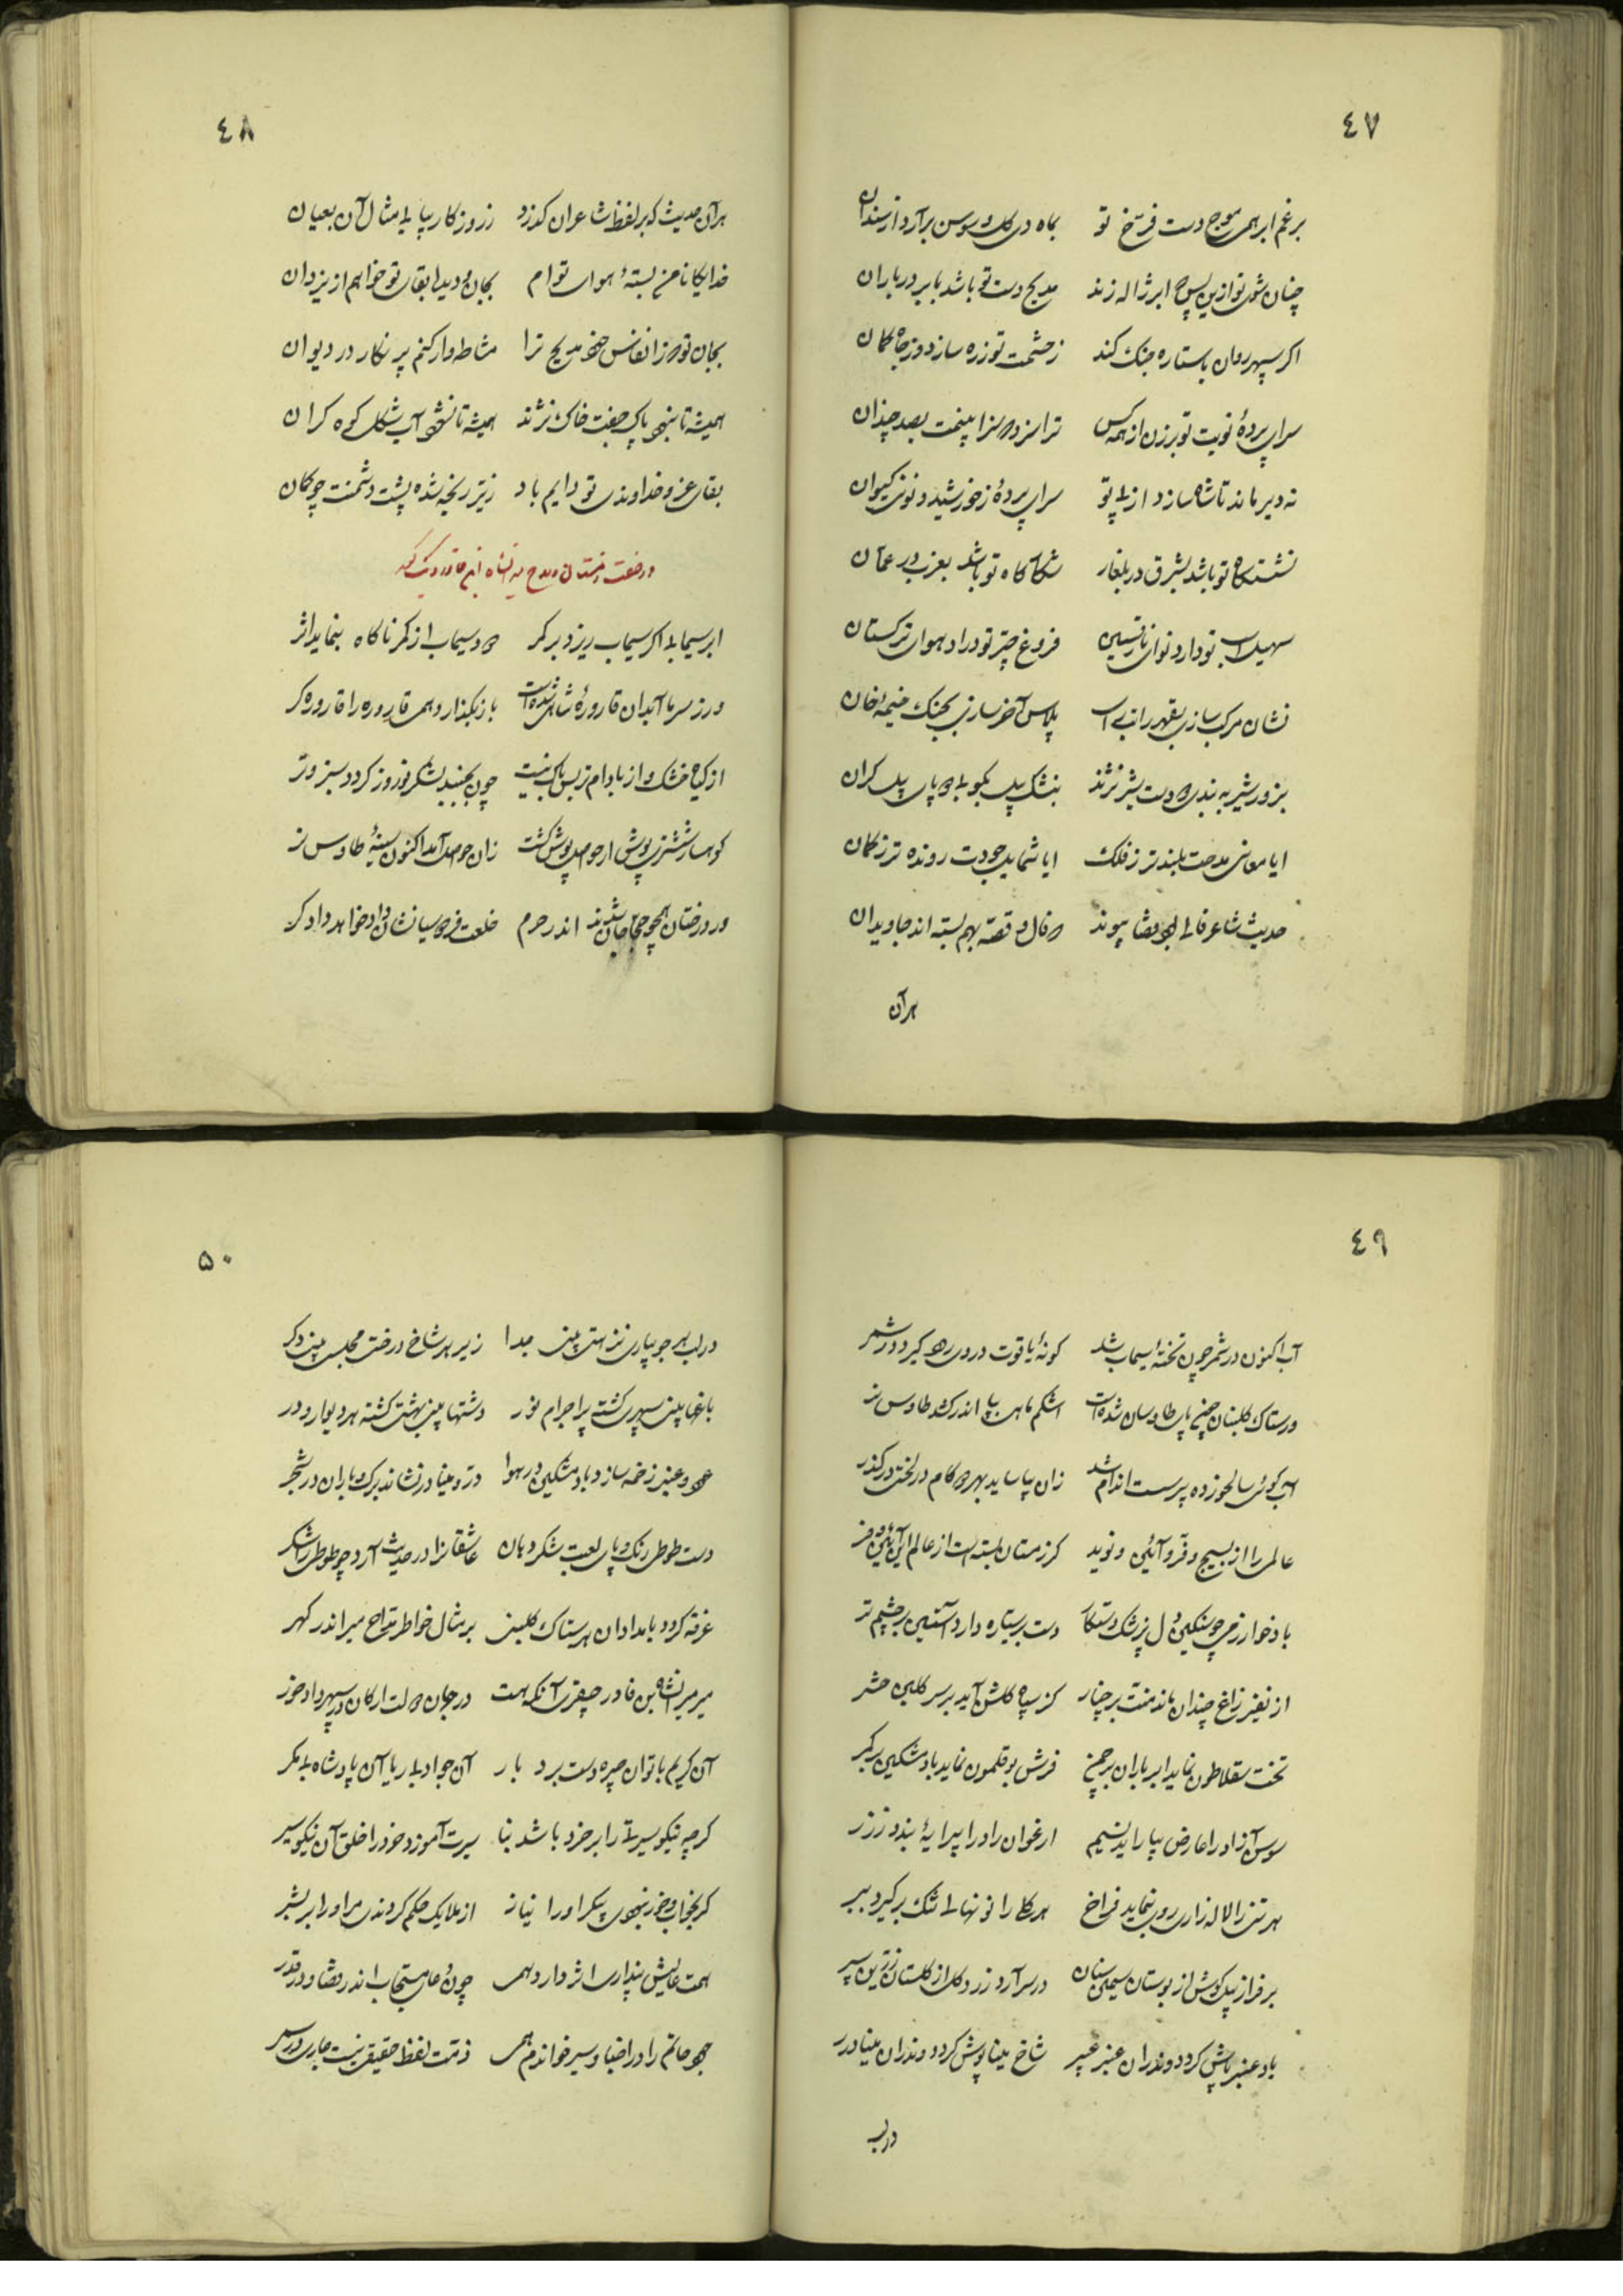 ٤٧
برغم ابر همی موج دست فرخ تو بماه دی گل و سوسن برآرد از سندان
چنان شوی تو ازین پس که ابر ژاله زند مدیح دست تو باشد بابر در باران
اکر سپهر روان با ستاره جنک کند زخشمت تو زره سازد و زجاه کمان
سرای پردهٔ نوبت تو برزن از همه کس ترا سزد که سزا بینمت بصد چندان
نه دیر ماند تا شاه سازد از پی تو سرای پردهٔ زخورشید و نوبتی کیوان
نشستکاه تو باشد بشرق در بلغار شکارکاه تو باشد بغرب در عمان
سهیل اسب تو دارد نوای فروغ چتر تو دارد هوای ترکستان
نشان مرکب سازی بقهر رایت پلاس آخر سازی بجنک خیمه خان
بزور شیر به بندی دو دست شیر نژند بنشک پیل بکوبی دو پای پیل کران
ایا معانی مدحت بلندتر ز فلک ایا شمایل جودت رونده تر زکمان
حدیث شاعر فالی بود قضا پیوند دو فال و قصه بهم بسته اند جاویدان
هرآن
٤٨
هرآن حدیث که بر لفظ شاعران کذرد ز روزکار بیابی مثال آن بعیان
خدایکانا من بستهٔ هوای توام بجان و دیده بقای تو خواهم از یزدان
بجان تو که ز انفاس خود مدیح ترا مشاطه وار کنم پر نکار در دیوان
همیشه تا نبود پاک جفت خاک نژند همیشه تا نشود آب شکل کوه کران
بقای عز و خداوندی تو دایم باد زتیر ریخته شده پشت دشمنت چو کمان
در صفت زمستان و مدح
ابر سیمابی اکر سیماب ریزد بر کمر دود سیماب از کمر ناکاه بنماید اثر
ور ز سرما آبدان قارورهٔ شامی شده است باز بکذارد همی قاروره را قاروره کر
از کیاه خشک و از بادام زیبش باک نیست چون بجنبد لشکر نوروز کردد سبز و تر
کوهسار ششتری پوش ار حواصل پوش کشت زان حواصل آمد اکنون سینهٔ طاوس نر
ور درختان همچو حجاجان شدند اندر حرم خلعت فردوسیانشان داد خواهد دادکر
٤٩
آب اکنون در شمر چون تختهٔ سیماب شد کونهٔ یاقوت در وی ره کیرد در شمر
ور ستاک کلبنان چون پای طاوسان شده است اشکم ماهی بیابد اندر کند طاوس نر
آب کوئی سالخورده پیر سست اندام شد زان بیاساید بهر دو کام در لختی در کذر
عالمی را از بسیج و فر و آئین و نوید کز زمستان بسته است از عالم
باد خوارزمی چو سنکین دل پزشک دستکار دست بر ستاره دارد آستین بر چشم تر
از نفیر زاغ چندان ماند منت بر چنار کز سپاه کلشن آید بر سر کلبن حشر
تخت سقلاطون نماید ابر باران بر چمن فرش بوقلمون نماید باد مشکین بر کمر
سوسن آزاد را عارض بیاراید نسیم ارغوان راد را پیرایهٔ بندد ز زر
هر تنی را لاله زاری روی بنماید فراخ هر کلی را نونهالی تنک بر کیرد ببر
بر فرازد پیلکوش از بوستان سیمین سنان در سر آرد زرد کل از کلستان زرین سپر
باد عنبر پاش کردد و ندران عنبر عبیر شاخ مینا پوش کردد و ندران مینا درر
در لب
٥٠
در لب هر جویباری نزهتی بینی جدا زیر هر شاخ درخت مجلسی بینی دکر
باغها بینی سپهری کشته پر اجرام نور دشتها بینی بهشتی کشته بر دیوار و در
عود و عنبر زخمه سازد باد مشکین در هوا در و مینا در نشاند برک و باران در شجر
دست طوطی رنک و پای لعبت شکر دهان عاشقانرا در حدیث آرد چو طوطی را شکر
غرقه کردد بامدادان هر ستاک کلبنی بر مثال خواطر مداح میر اندر کهر
میر میرانشاه بن قادر جیقری آنکه هست در جهان دولت ارکان و سپهر داد خور
آن کریم با توان چیره دست بردبار آن جواد بی ریا آن پادشاه بی مکر
کرچه نیکو سیرتی را بر خرد باشد بنا سیرت آموزد خرد را خلق آن نیکو سیر
کر بخواب و خور نبودی پیکر او را نیاز از ملایک حکم کردندی مر او را بر بشر
همت عالیش پنداری اثر دارد همی چون دعای مستجاب اندر قضا و در قدر
جود حاتم را در اخبار و سیر خواندم همی ذمت لفظ حقیقی نیست جاری در سیر